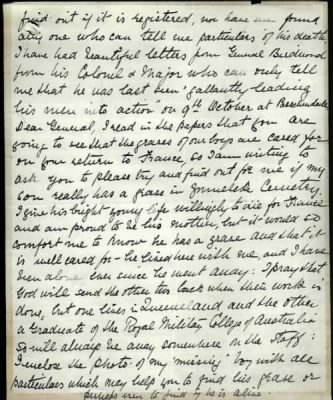 find out if it is registered, nor have we found
any one who can tell me particulars of his death
I have had beautiful letters from General Birdwood
from his Colonel & Major who can only tell
me that he was last seen "gallantly leading
his men into action" on 9th October at
Dear General, I read in the papers that you are
going to see that the graves of our boys are cared for
on your return to France, so I am writing to
ask you to please try and find out for me if my
son really has a grave in Zonnebeke Cemetery,
I give his bright young life willingly to die for France
and am proud to be his mother, but it would so
comfort me to know he has a grave and that it
is well cared for - he lived here with me, and I have
been alone ever since he went away: I pray that
God will send the other two back when their work is
done, but one lives in Queensland and the other
a Graduate of the Royal Military College of Australia
so will always be away somewhere on the Staff:
I enclose the photo: of my "missing" boy with all
particulars which may help you to find his grave or
perhaps even to find if he is alive.